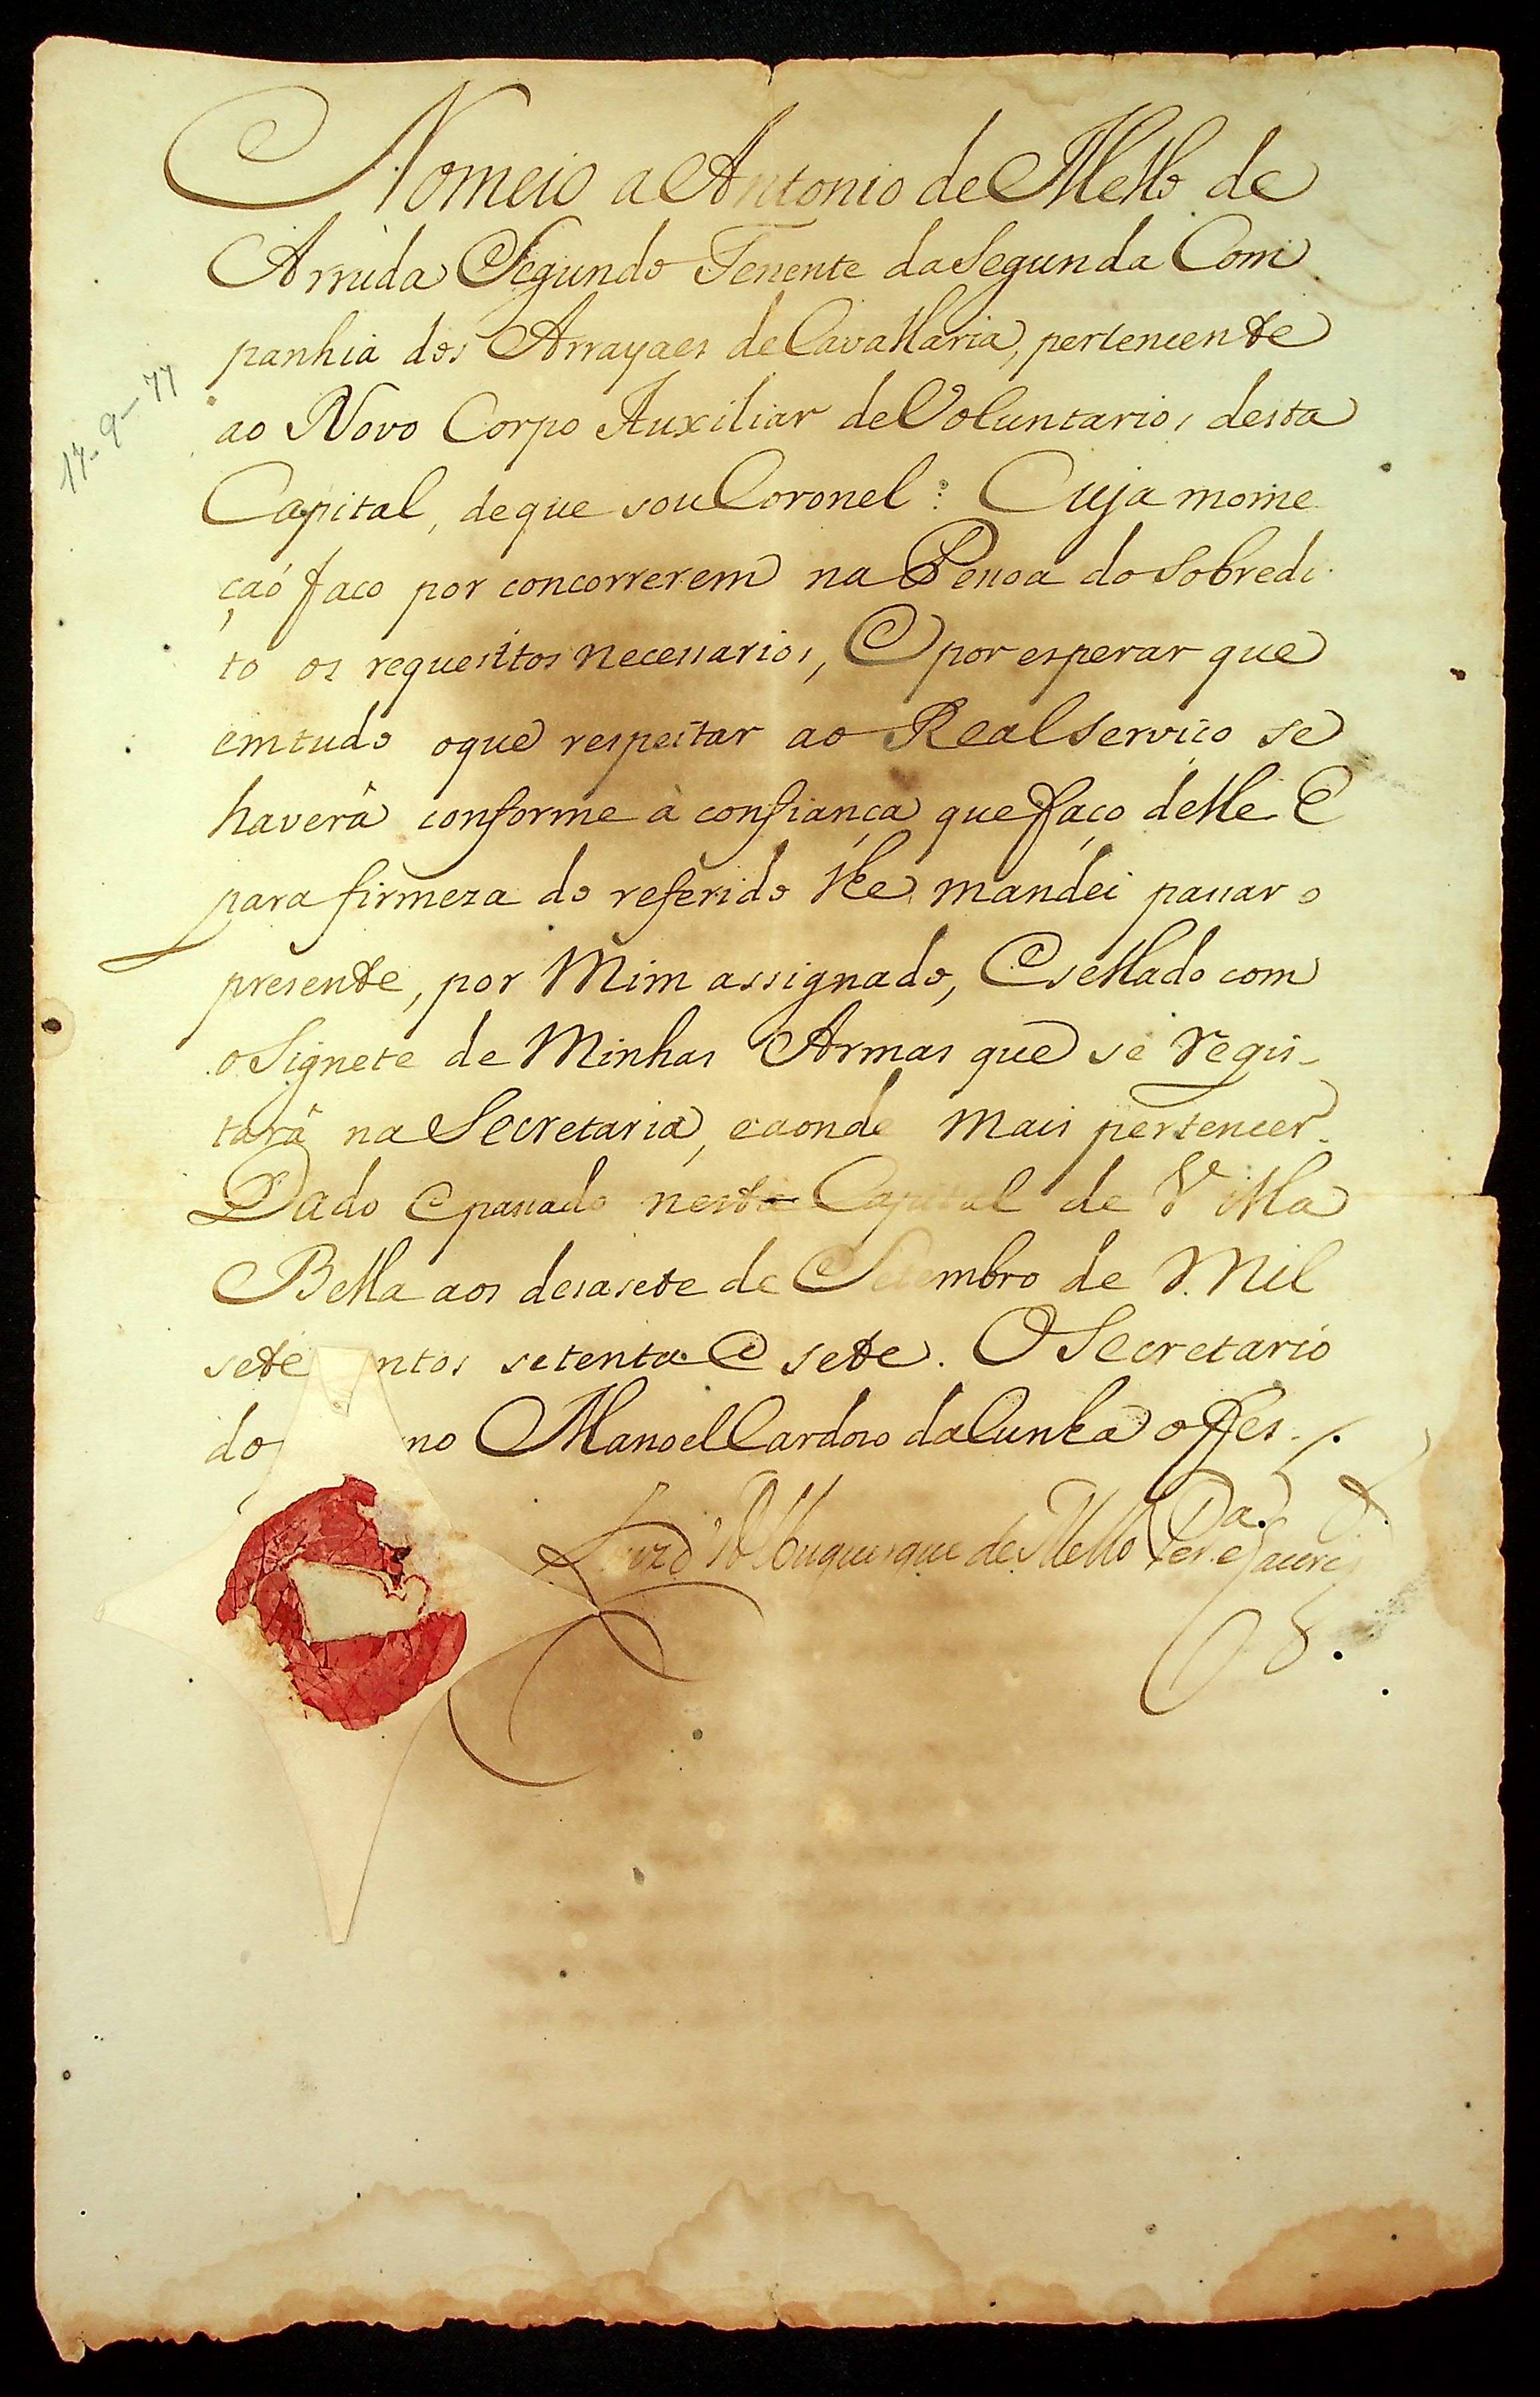 Nomeio a Antonio de Mello de
Arruda Segundo Tenente da Segunda Com
panhia dos Arrayaes de Cavallaria, pertencente
ao Novo Corpo Auxiliar de Voluntarios desta
Capital, de que sou Coronel: Cuja nome
çaõ faço por concorrerem na Pessoa do sobredi
to os requesitos necessarios, E por esperar que
em tudo o que respeitar ao Real serviço se
haverâ conforme à confiança que faço delle. E
para firmeza do referido lhe mandei passar o
presente, por Mim assignado, E sellado com
o Signete de Minhas Armas que se regis-
tarâ na Secretaria, e aonde mais pertencer.
Dado e passado nesta Capital de Villa
Bella aos desasete de Setembro de Mil
sete ntos setenta E sete. O Secretario
do no Manoel Cardozo da Cunha o fes.
Luiz d'Albuquerque de Mello Per.ª e Caceres
17-9-77